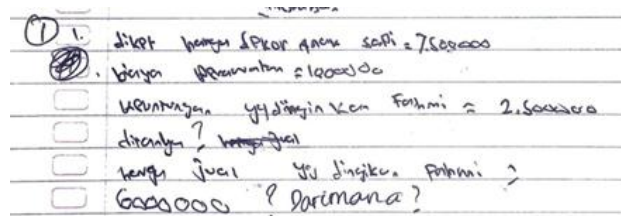 ① 1. diket harga seekor anak sapi = 7.500000
biaya perawatan = 1000000
keuntungan yg diinginkan Fahmi = 2.5000000
ditanya?
harga jual yg diinginkan Fahmi ?
6000000 ? Darimana?